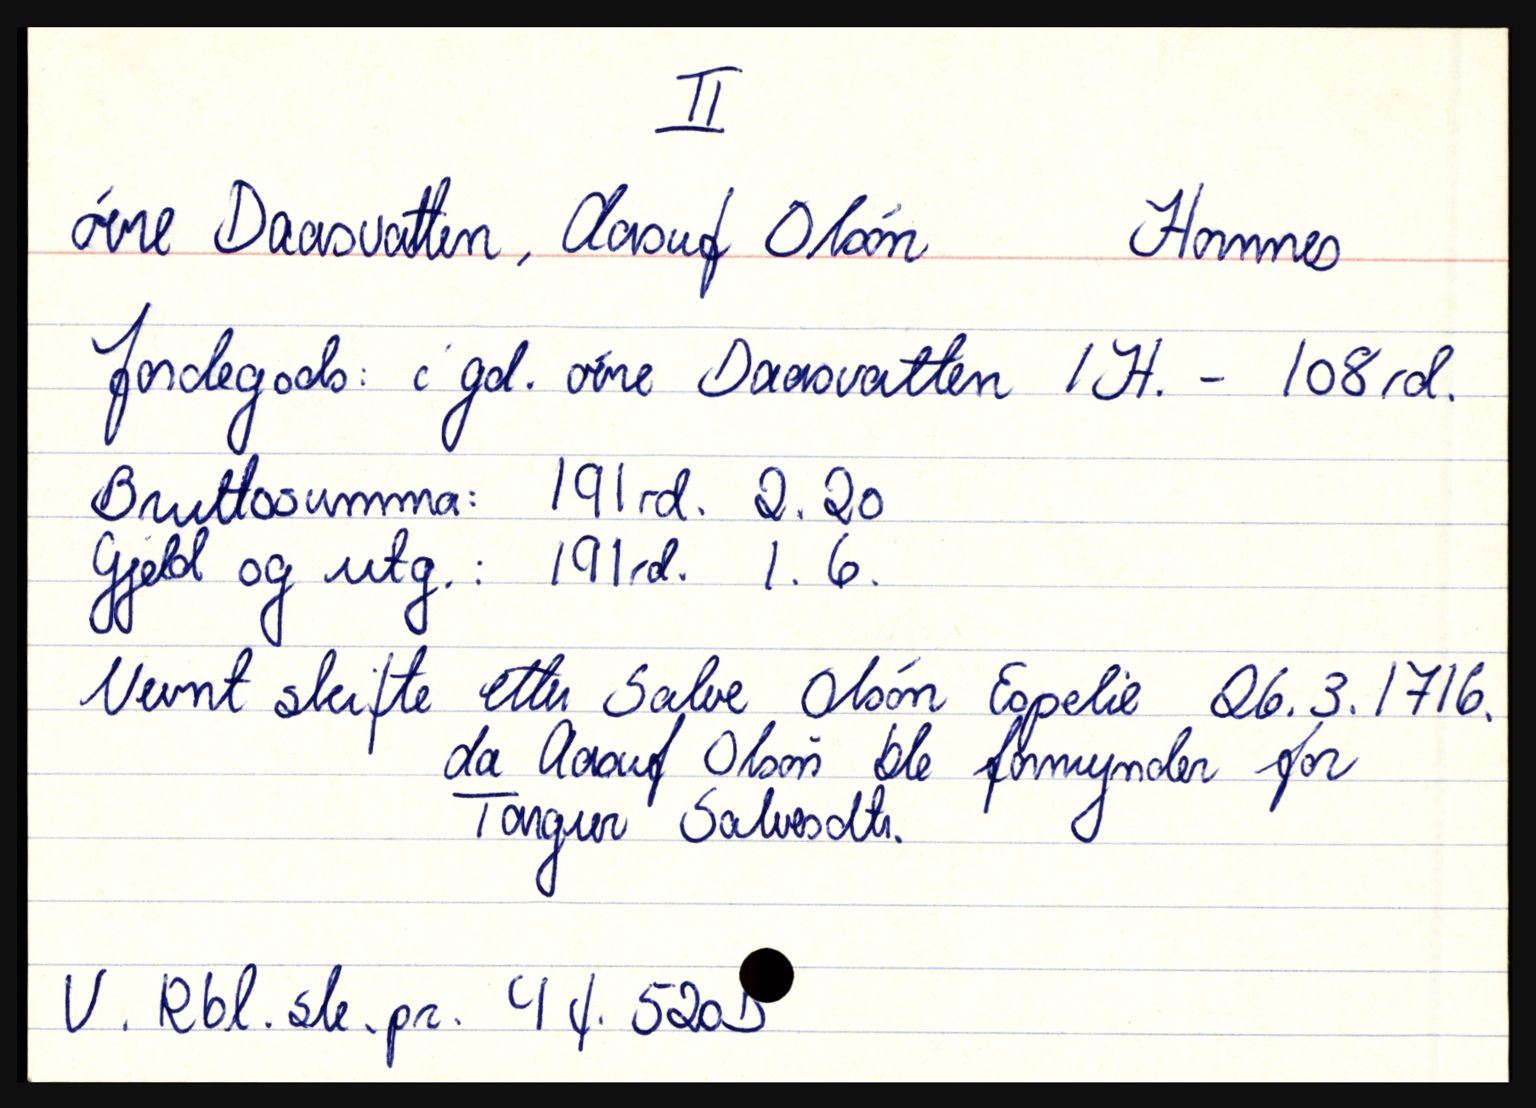 II
óvre Daasvatten, Aasuf Olsón Hornnes
Jordegods: i gd. óvre Daasvatten 1 H. - 108 rd.
Bruttosumma: 191 rd. 2. 20
Gjeld og utg.: 191 rd. 1. 6.
Nevnt skifte etter Salve Olsón Espelie 26.3.1716.
da Aasuf Olsón ble formynder for
Torgun Salvesdtr.
V. Rbl. sk. pr. 4 f. 520 b